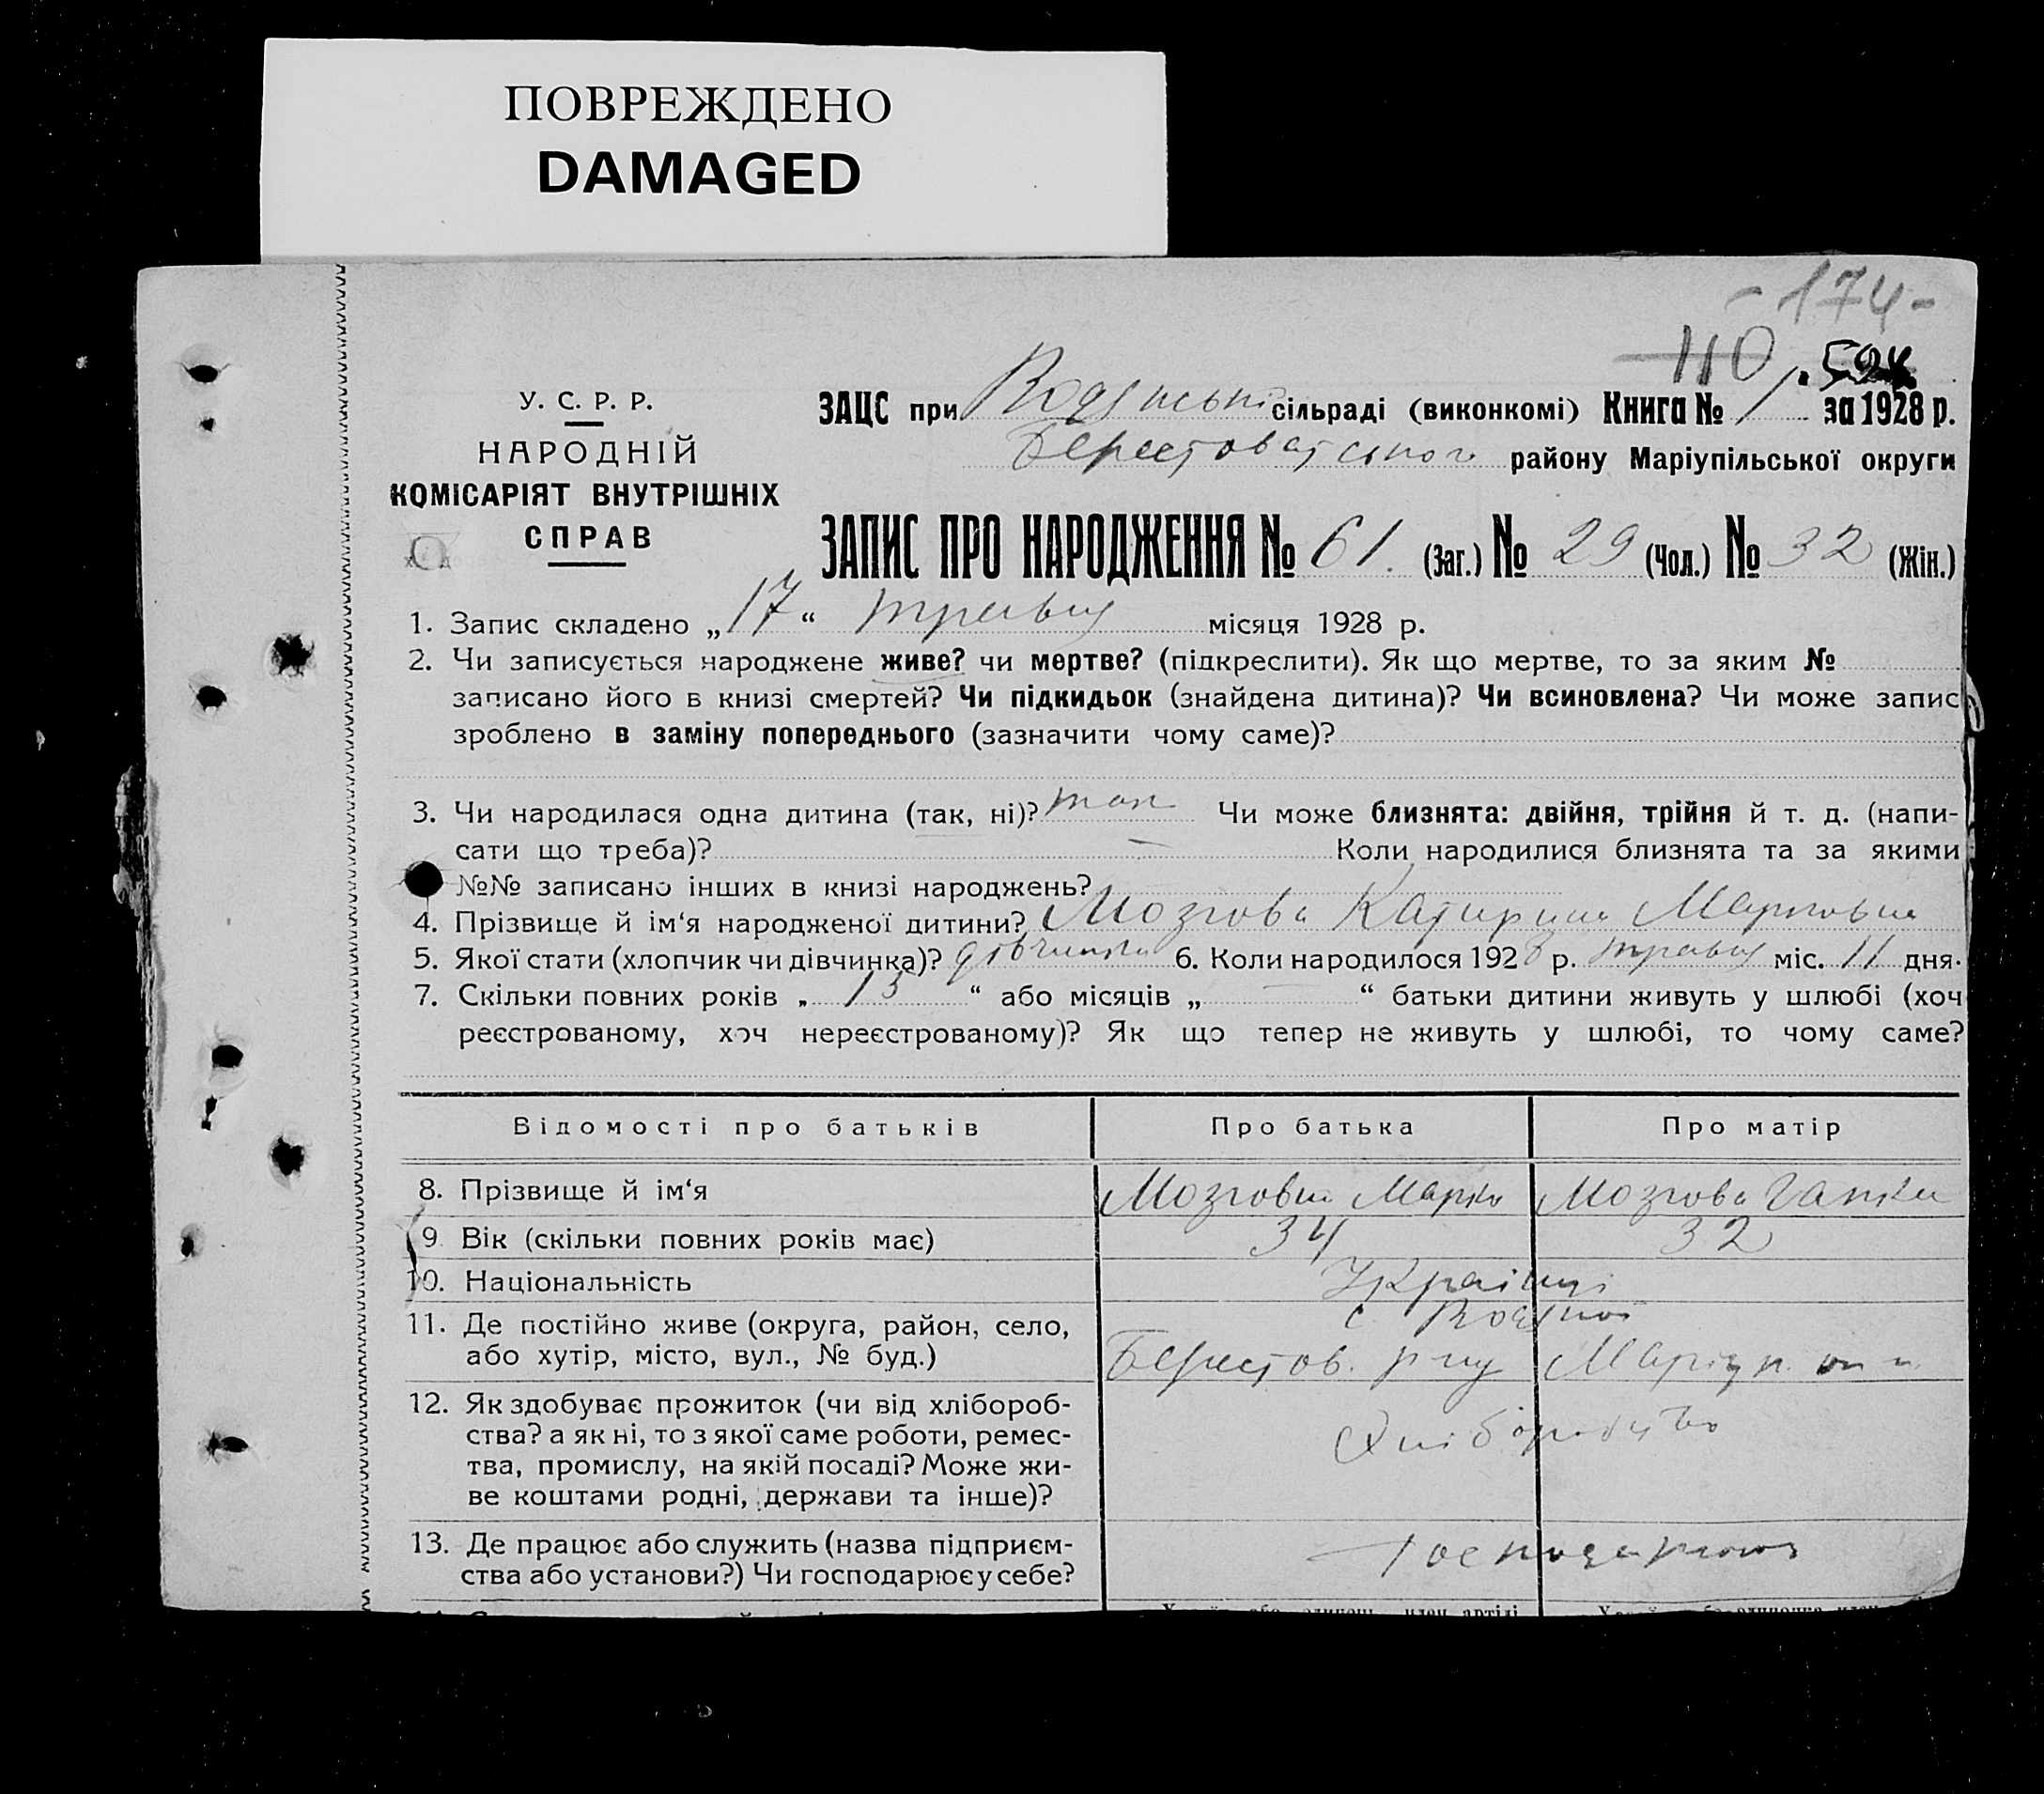 ПОВРЕЖДЕНО
DAMAGED
- 174 -
110
У. С. Р. Р.
НАРОДНІЙ
КОМІСАРІЯТ ВНУТРІШНІХ
СПРАВ
ЗАЦС при сільраді (виконкомі) Книга № 1 за 1928 р.
Берестоватського району Маріупільської округи
ЗАПИС ПРО НАРОДЖЕННЯ № 61. (Заг.) № 29 (Чол.) № 32 (Жін.)
1. Запис складено „17“ травня місяця 1928 р.
2. Чи записується народжене живе? чи мертве? (підкреслити). Як що мертве, то за яким №
записано його в книзі смертей? Чи підкидьок (знайдена дитина)? Чи всиновлена? Чи може запис
зроблено в заміну попереднього (зазначити чому саме)?
3. Чи народилася одна дитина (так, ні)? так Чи може близнята: двійня, трійня й т. д. (напи-
сати що треба)? — Коли народилися близнята та за якими
№№ записано інших в книзі народжень?
4. Прізвище й ім‘я народженої дитини? Мозгова Катирина Марковна
5. Якої стати (хлопчик чи дівчинка)? дівчинка 6. Коли народилося 1928 р. травня міс. 11 дня.
7. Скільки повних років „ 15 “ або місяців „ — “ батьки дитини живуть у шлюбі (хоч
реєстрованому, хоч нереєстрованому)? Як що тепер не живуть у шлюбі, то чому саме?
Відомості про батьків Про батька Про матір
8. Прізвище й ім‘я Мозговий Марко Мозгова Гапка
9. Вік (скільки повних років має) 34 32
10. Національність Українці
11. Де постійно живе (округа, район, село, с. Водяної
або хутір, місто, вул., № буд.) Берестов. р-ну Маріуп.
12. Як здобуває прожиток (чи від хлібороб-
ства? а як ні, то з якої саме роботи, ремес- Хліборобство
тва, промислу, на якій посаді? Може жи-
ве коштами родні, держави та інше)?
13. Де працює або служить (назва підприєм-
ства або установи?) Чи господарює у себе?